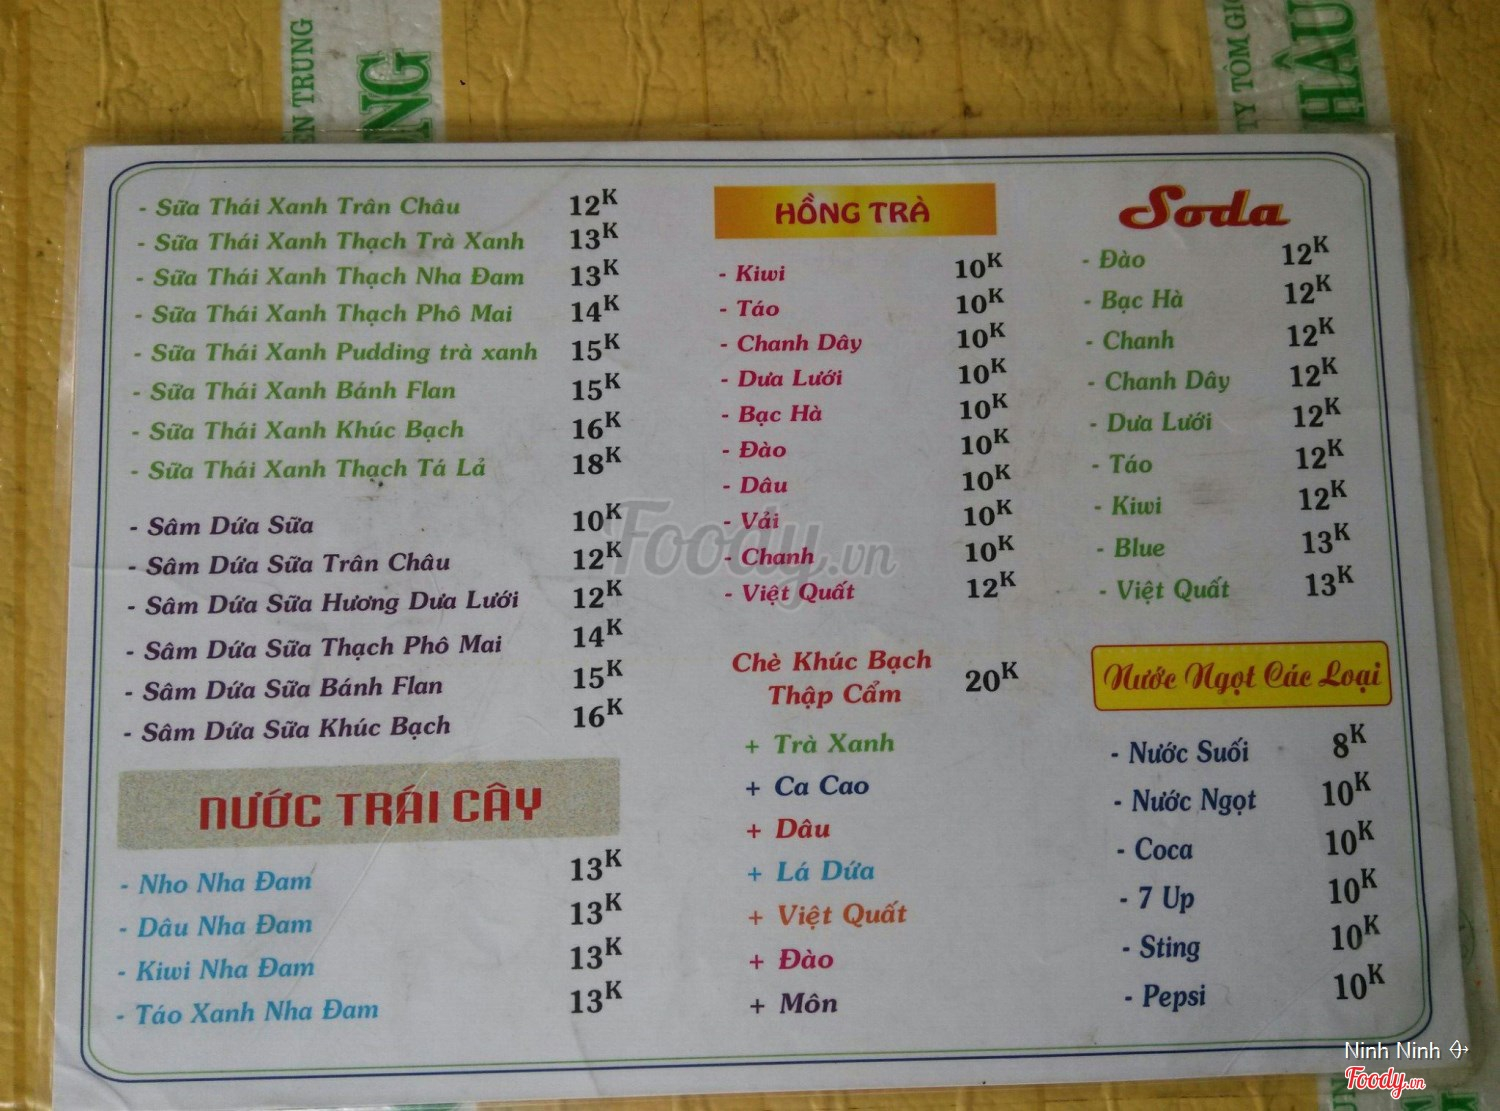 ỀN TRUNG
NG
TY TÔM GIỐ
HÂU
- Sữa Thái Xanh Trân Châu 12K
- Sữa Thái Xanh Thạch Trà Xanh 13K
- Sữa Thái Xanh Thạch Nha Đam 13K
- Sữa Thái Xanh Thạch Phô Mai 14K
- Sữa Thái Xanh Pudding trà xanh 15K
- Sữa Thái Xanh Bánh Flan 15K
- Sữa Thái Xanh Khúc Bạch 16K
- Sữa Thái Xanh Thạch Tá Lả 18K
- Sâm Dứa Sữa 10K
- Sâm Dứa Sữa Trân Châu 12K
- Sâm Dứa Sữa Hương Dưa Lưới 12K
- Sâm Dứa Sữa Thạch Phô Mai 14K
- Sâm Dứa Sữa Bánh Flan 15K
- Sâm Dứa Sữa Khúc Bạch 16K
NƯỚC TRÁI CÂY
- Nho Nha Đam 13K
- Dâu Nha Đam 13K
- Kiwi Nha Đam 13K
- Táo Xanh Nha Đam 13K
HỒNG TRÀ
- Kiwi 10K
- Táo 10K
- Chanh Dây 10K
- Dưa Lưới 10K
- Bạc Hà 10K
- Đào 10K
- Dâu 10K
- Vải 10K
- Chanh 10K
- Việt Quất 12K
Chè Khúc Bạch
Thập Cẩm 20K
+ Trà Xanh
+ Ca Cao
+ Dâu
+ Lá Dứa
+ Việt Quất
+ Đào
+ Môn
Soda
- Đào 12K
- Bạc Hà 12K
- Chanh 12K
- Chanh Dây 12K
- Dưa Lưới 12K
- Táo 12K
- Kiwi 12K
- Blue 13K
- Việt Quất 13K
Nước Ngọt Các Loại
- Nước Suối 8K
- Nước Ngọt 10K
- Coca 10K
- 7 Up 10K
- Sting 10K
- Pepsi 10K
Foody.vn
Ninh Ninh
Foody.vn